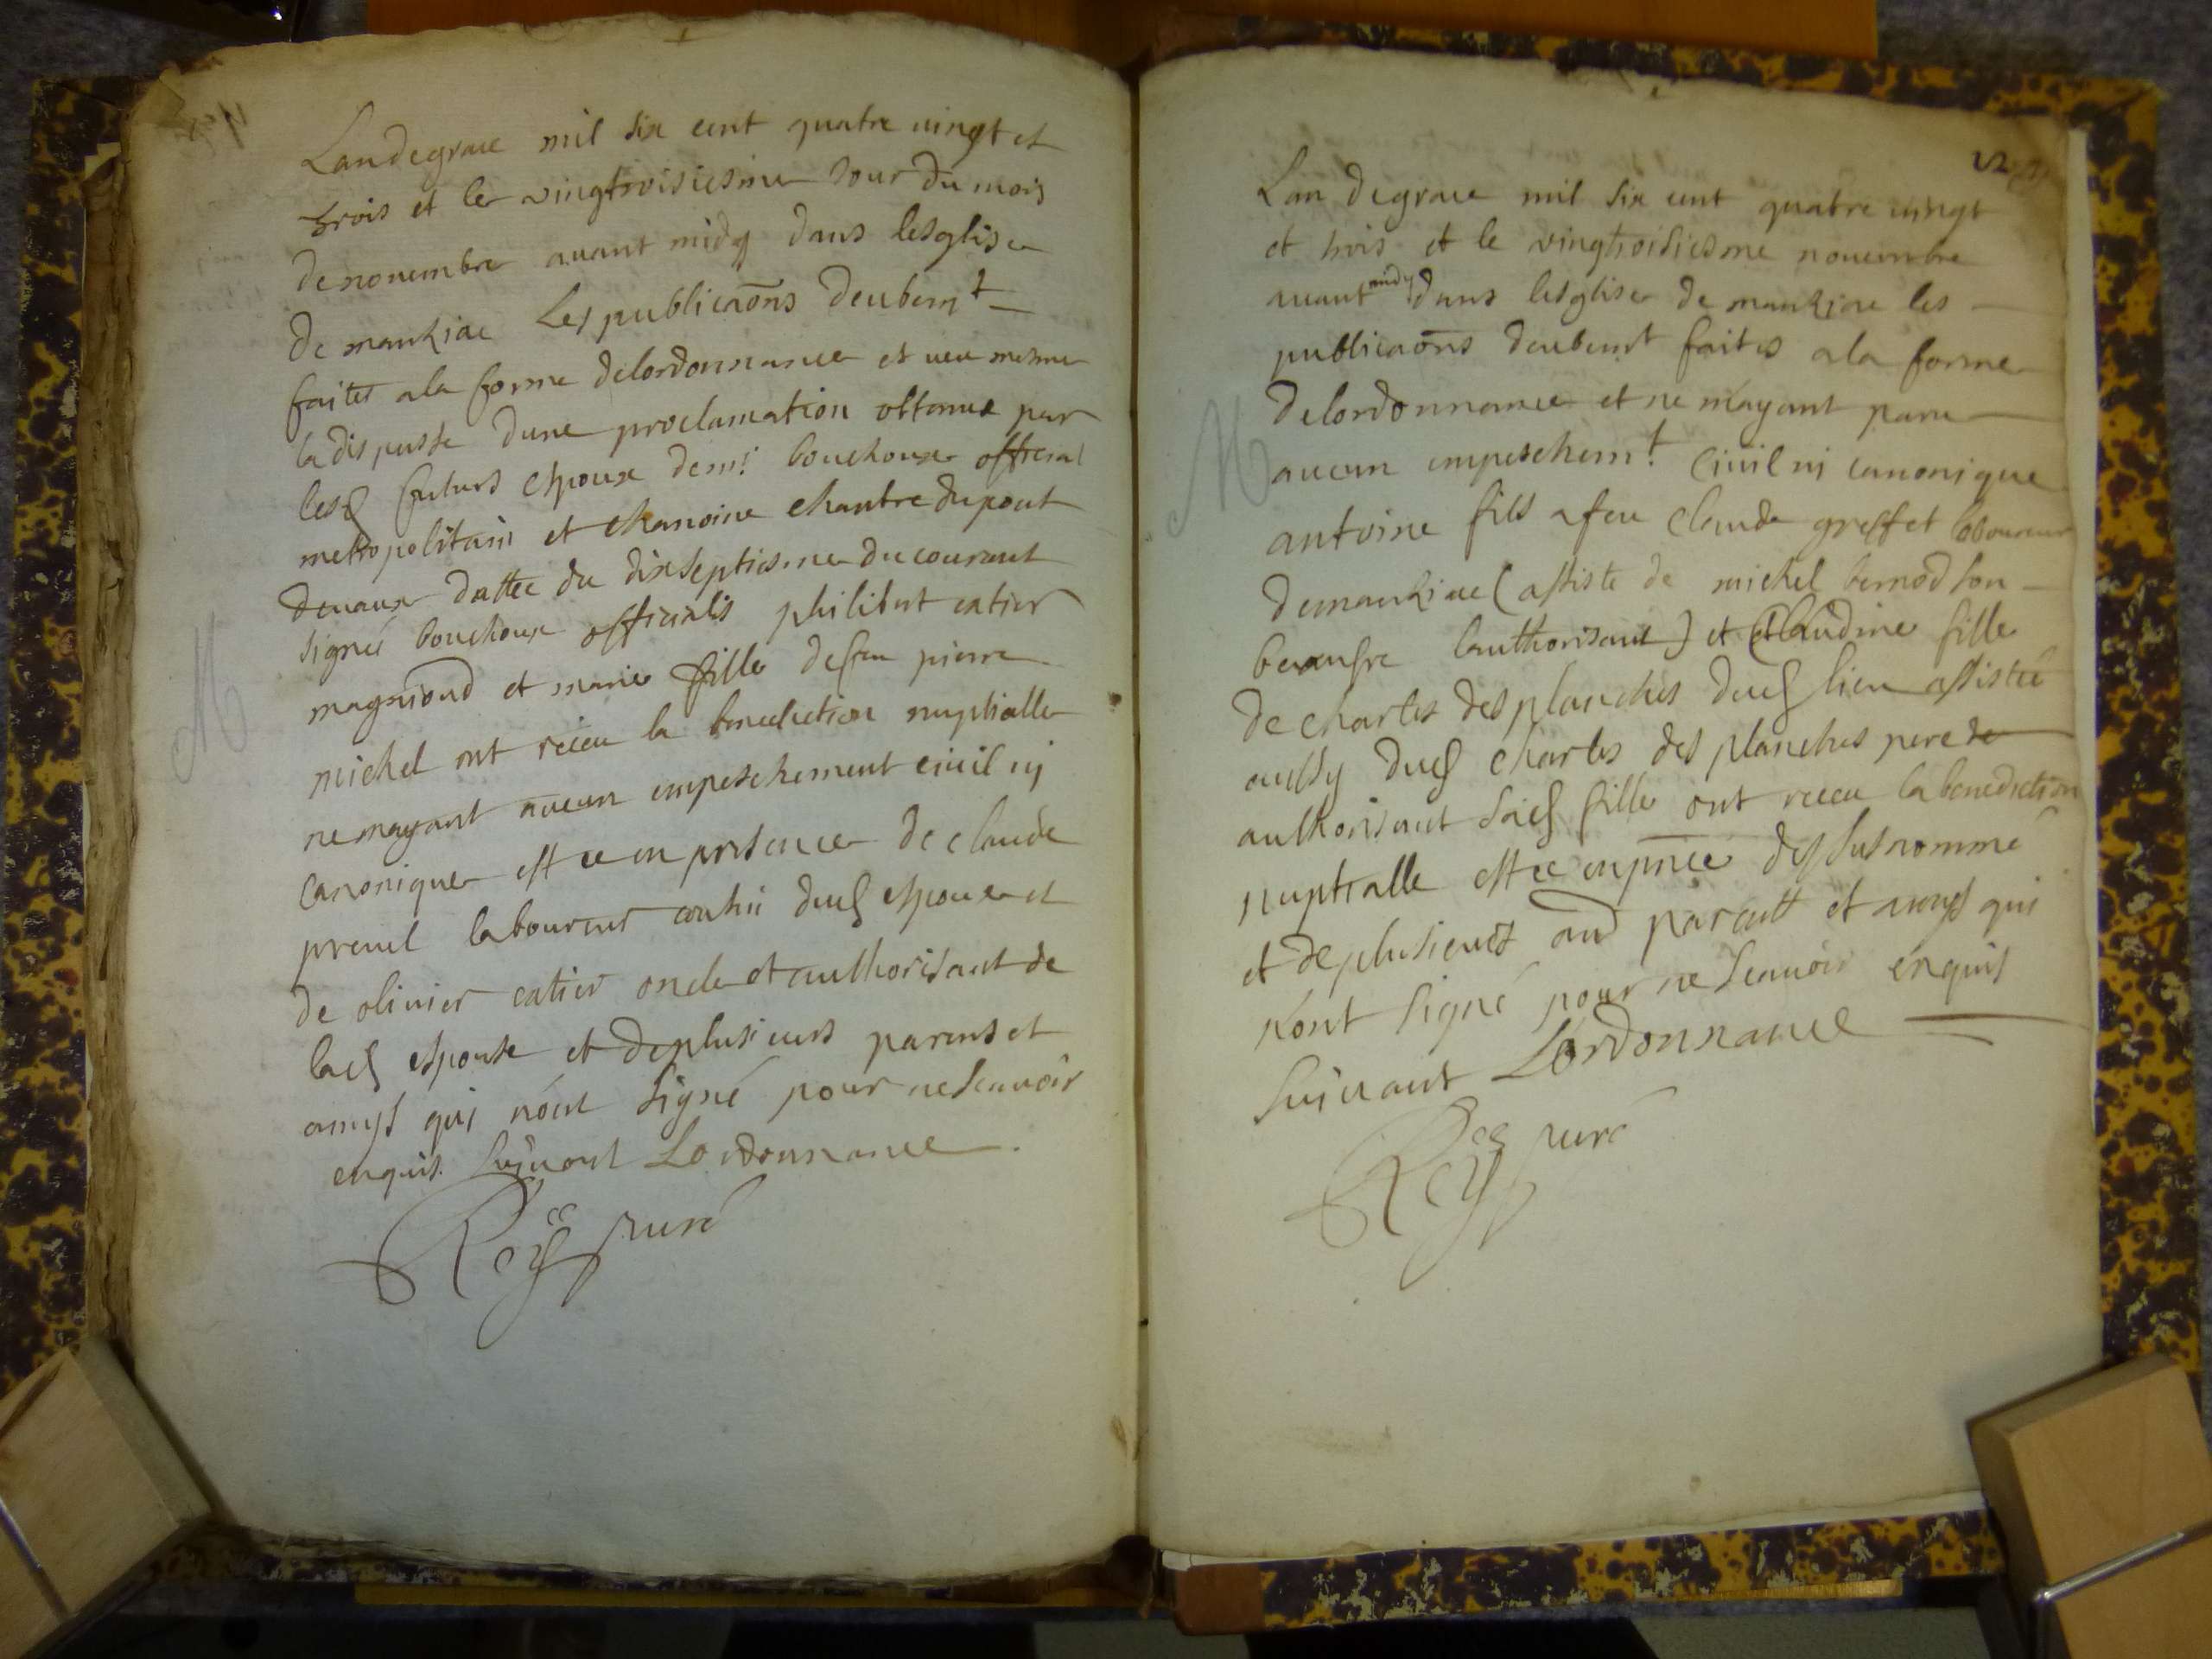 Landegrace mil six cent quatre vingt et
trois et le vingtroisiesme Jour du mois
de novembre avant midy dans lesglise
de manziac Les publicaõns deubemt
faites a la forme delordonnance et veu mesme
la dispense dune proclamation obtenue par
lesd futurs espoux de mr bouchoux official
metropolitain et chanoine chantre du pont
devaux dattée du dixseptiesme du courant
signée bouchoux officialis philibert catier
magniond et marie fille de feu pierre
michel ont receu la benediction nuptialle
ne mayant aucun empeschement civil ny
canonique est ce en presence de claude
preuel laboureur cousin dud espoux et
de olivier catier oncle et authorisant de
lad espouse et deplusieurs parens et
amys qui nónt signé pour ne scavoir
enquis suivant Lordonnance
Rey curé
52
Lan degrace mil six cent quatre vingt
et trois et le vingtroisiesme novembre
avant midy dans lesglise de manziac les
publicaõns deubemt faites a la forme
delordonnance et ne mayant paru
aucun empeschemt civil ni canonique
antoine fils a feu claude greffet laboureur
demanziac (assiste de michel bernod son
beaufre lauthorisant) et Claudine fille
de charles desplanches dud lieu assistée
aussy dud charles des planches pere de
authorisant sad fille ont receu la benediction
nuptialle est ce en pñce des susnommé
et deplusieurs aud parentt et amys qui
nont signé pour ne scavoir enquis
suivant Lordonnance
Rey curé
M
M